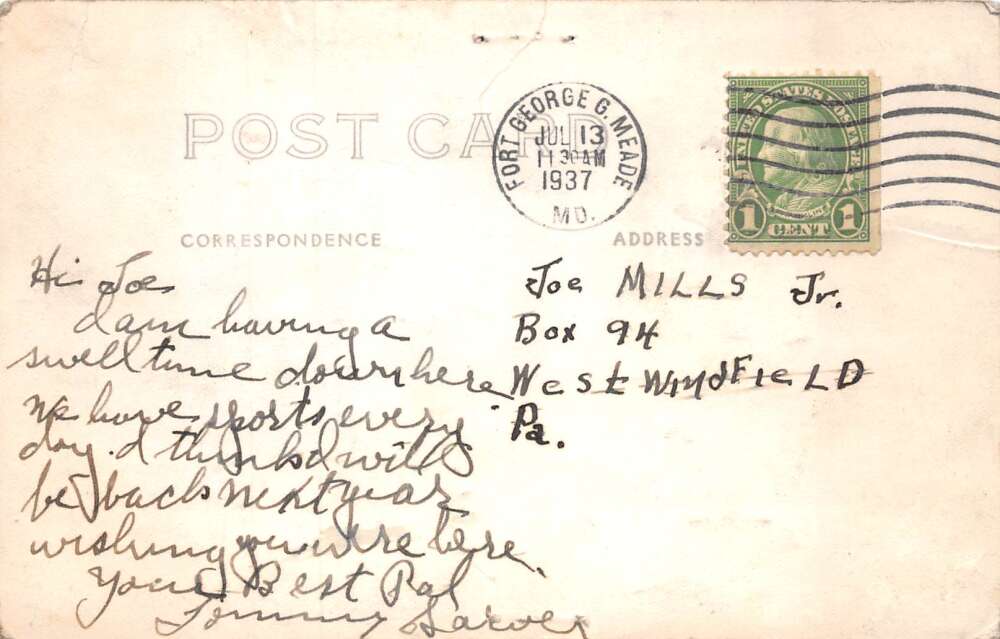 POST CARD
FORT GEORGE G. MEADE
JUL 13
11 30 AM
1937
MD.
UNITED STATES POSTAGE
FRANKLIN
1 CENT 1
CORRESPONDENCE
ADDRESS
Hi Joe
I am having a
swell time down here
We have sports every
day. I think I will
be back next year
wishing you were here.
Your Best Pal
Tommy Sarver
Joe MILLS Jr.
Box 94
West WindFieLD
Pa.